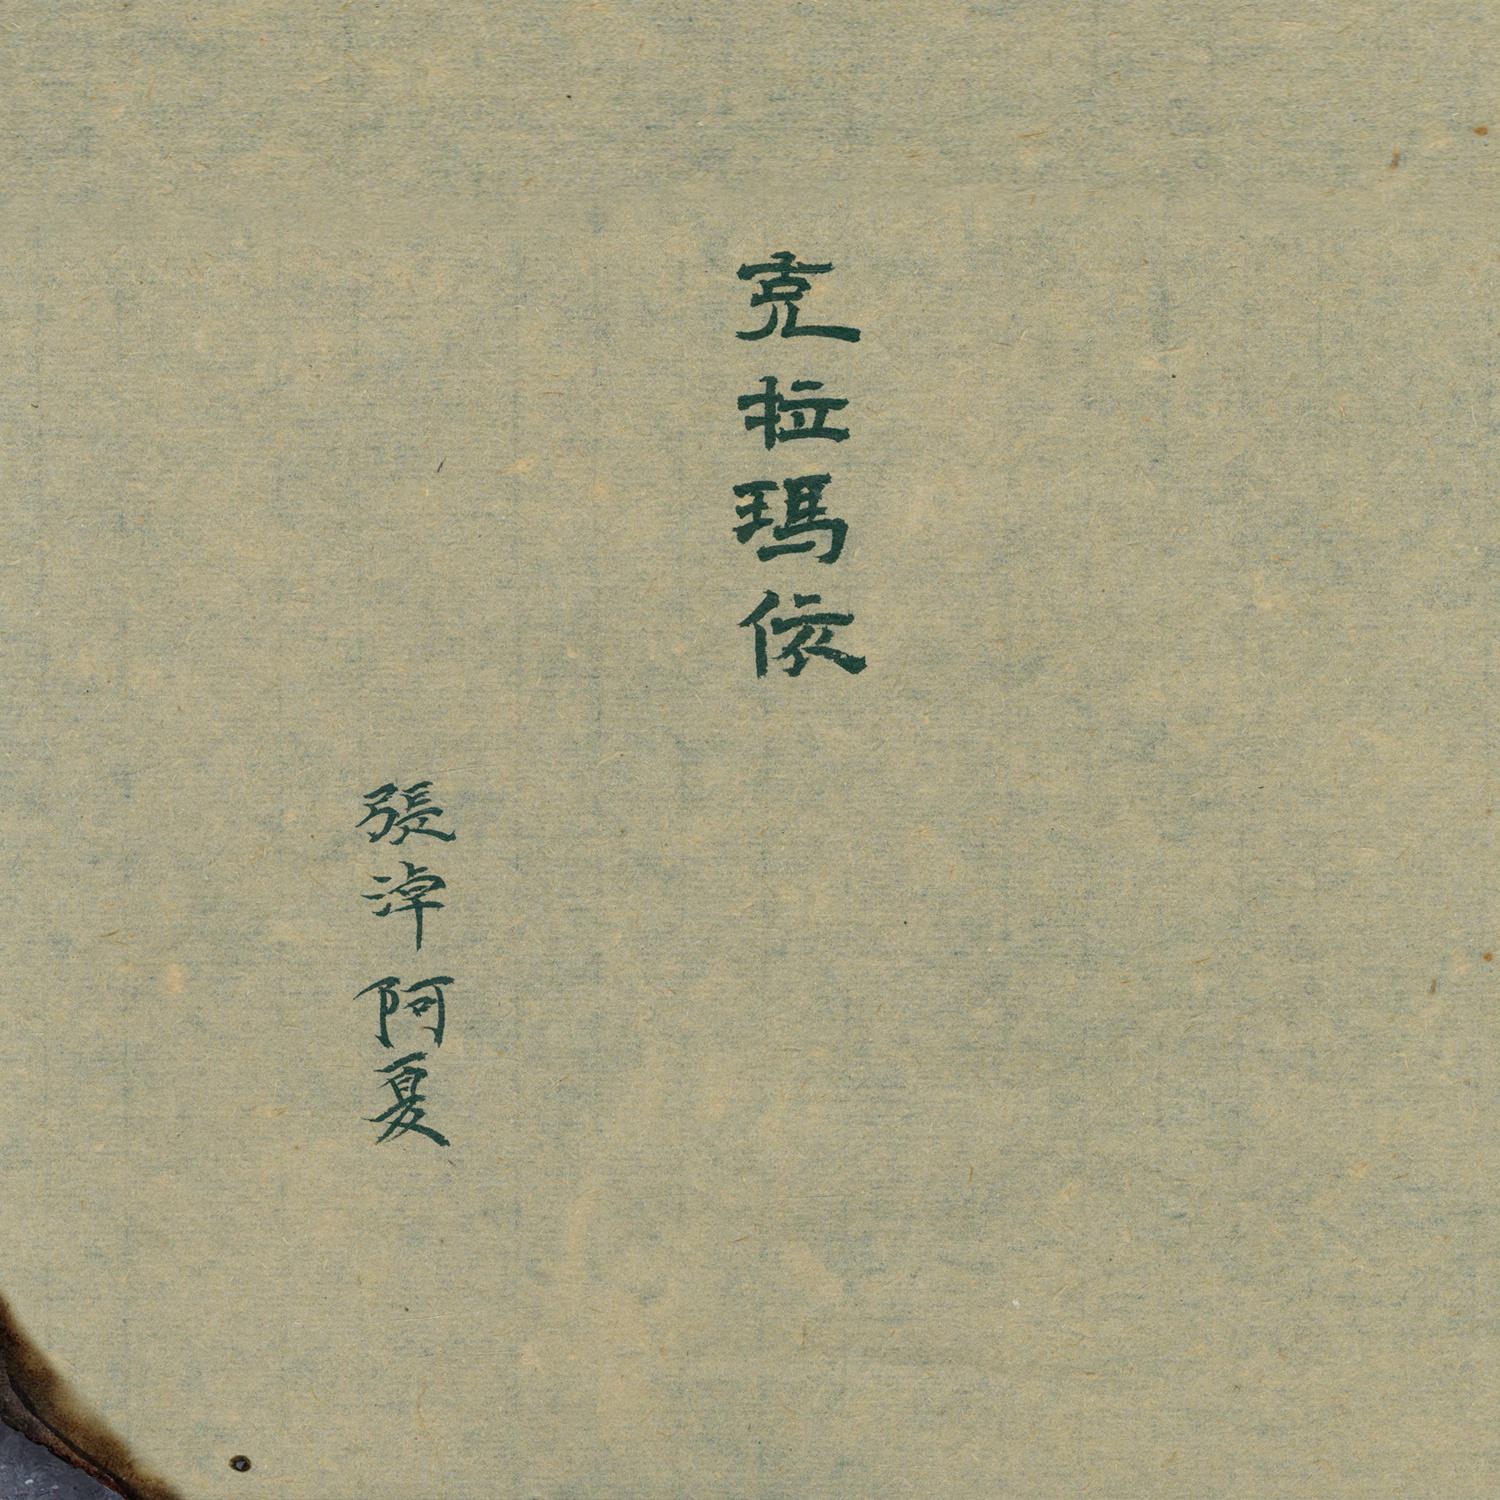 克拉瑪依
張淖 阿夏